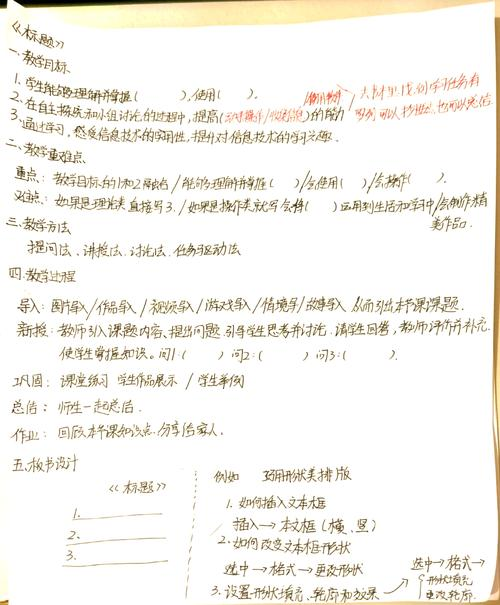 《标题》
一、教学目标
1. 学生能够理解并掌握(    ),使用(    )。
2. 在自主探究和小组讨论的过程中,提高(动手操作/收集信息)的能力
3. 通过学习,感受信息技术的实用性,提升对信息技术的学习兴趣.
二、教学重难点
重点: 教学目标的1和2融合 / 能够理解并掌握(    )/会使用(    )/会操作(    ).
难点: 如果是理论类直接写3. / 如果是操作类就写会将(    )运用到生活和学习中/会制作精美作品。
三、教学方法
提问法、讲授法、讨论法、任务驱动法
四、教学过程
导入: 图片导入/作品导入/视频导入/游戏导入/情境导/故事导入 从而引出本节课课题.
新授: 教师引入课题内容、提出问题、引导学生思考并讨论,请学生回答,教师评价并补充.
使学生掌握知识。问1:(    ) 问2:(    ) 问3:(    ).
巩固: 课堂练习 学生作品展示 / 学生举例
总结: 师生一起总结.
作业: 回顾本节课知识点.分享给家人.
五、板书设计
《标题》
1.
2.
3.
例如 巧用形状美排版
1. 如何插入文本框
插入→文本框(横、竖)
2. 如何改变文本框形状
选中→格式→更改形状
3. 设置形状填充、轮廓和效果→
选中→格式→
形状填充
更改轮廓